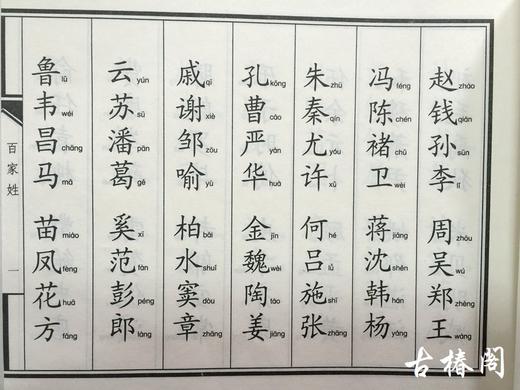 赵 zhào 钱 qián 孙 sūn 李 lǐ 周 zhōu 吴 wú 郑 zhèng 王 wáng
冯 féng 陈 chén 褚 chǔ 卫 wèi 蒋 jiǎng 沈 shěn 韩 hán 杨 yáng
朱 zhū 秦 qín 尤 yóu 许 xǔ 何 hé 吕 lǚ 施 shī 张 zhāng
孔 kǒng 曹 cáo 严 yán 华 huà 金 jīn 魏 wèi 陶 táo 姜 jiāng
戚 qī 谢 xiè 邹 zōu 喻 yù 柏 bǎi 水 shuǐ 窦 dòu 章 zhāng
云 yún 苏 sū 潘 pān 葛 gě 奚 xī 范 fàn 彭 péng 郎 láng
鲁 lǔ 韦 wéi 昌 chāng 马 mǎ 苗 miáo 凤 fèng 花 huā 方 fāng
百家姓
一
古椿阁